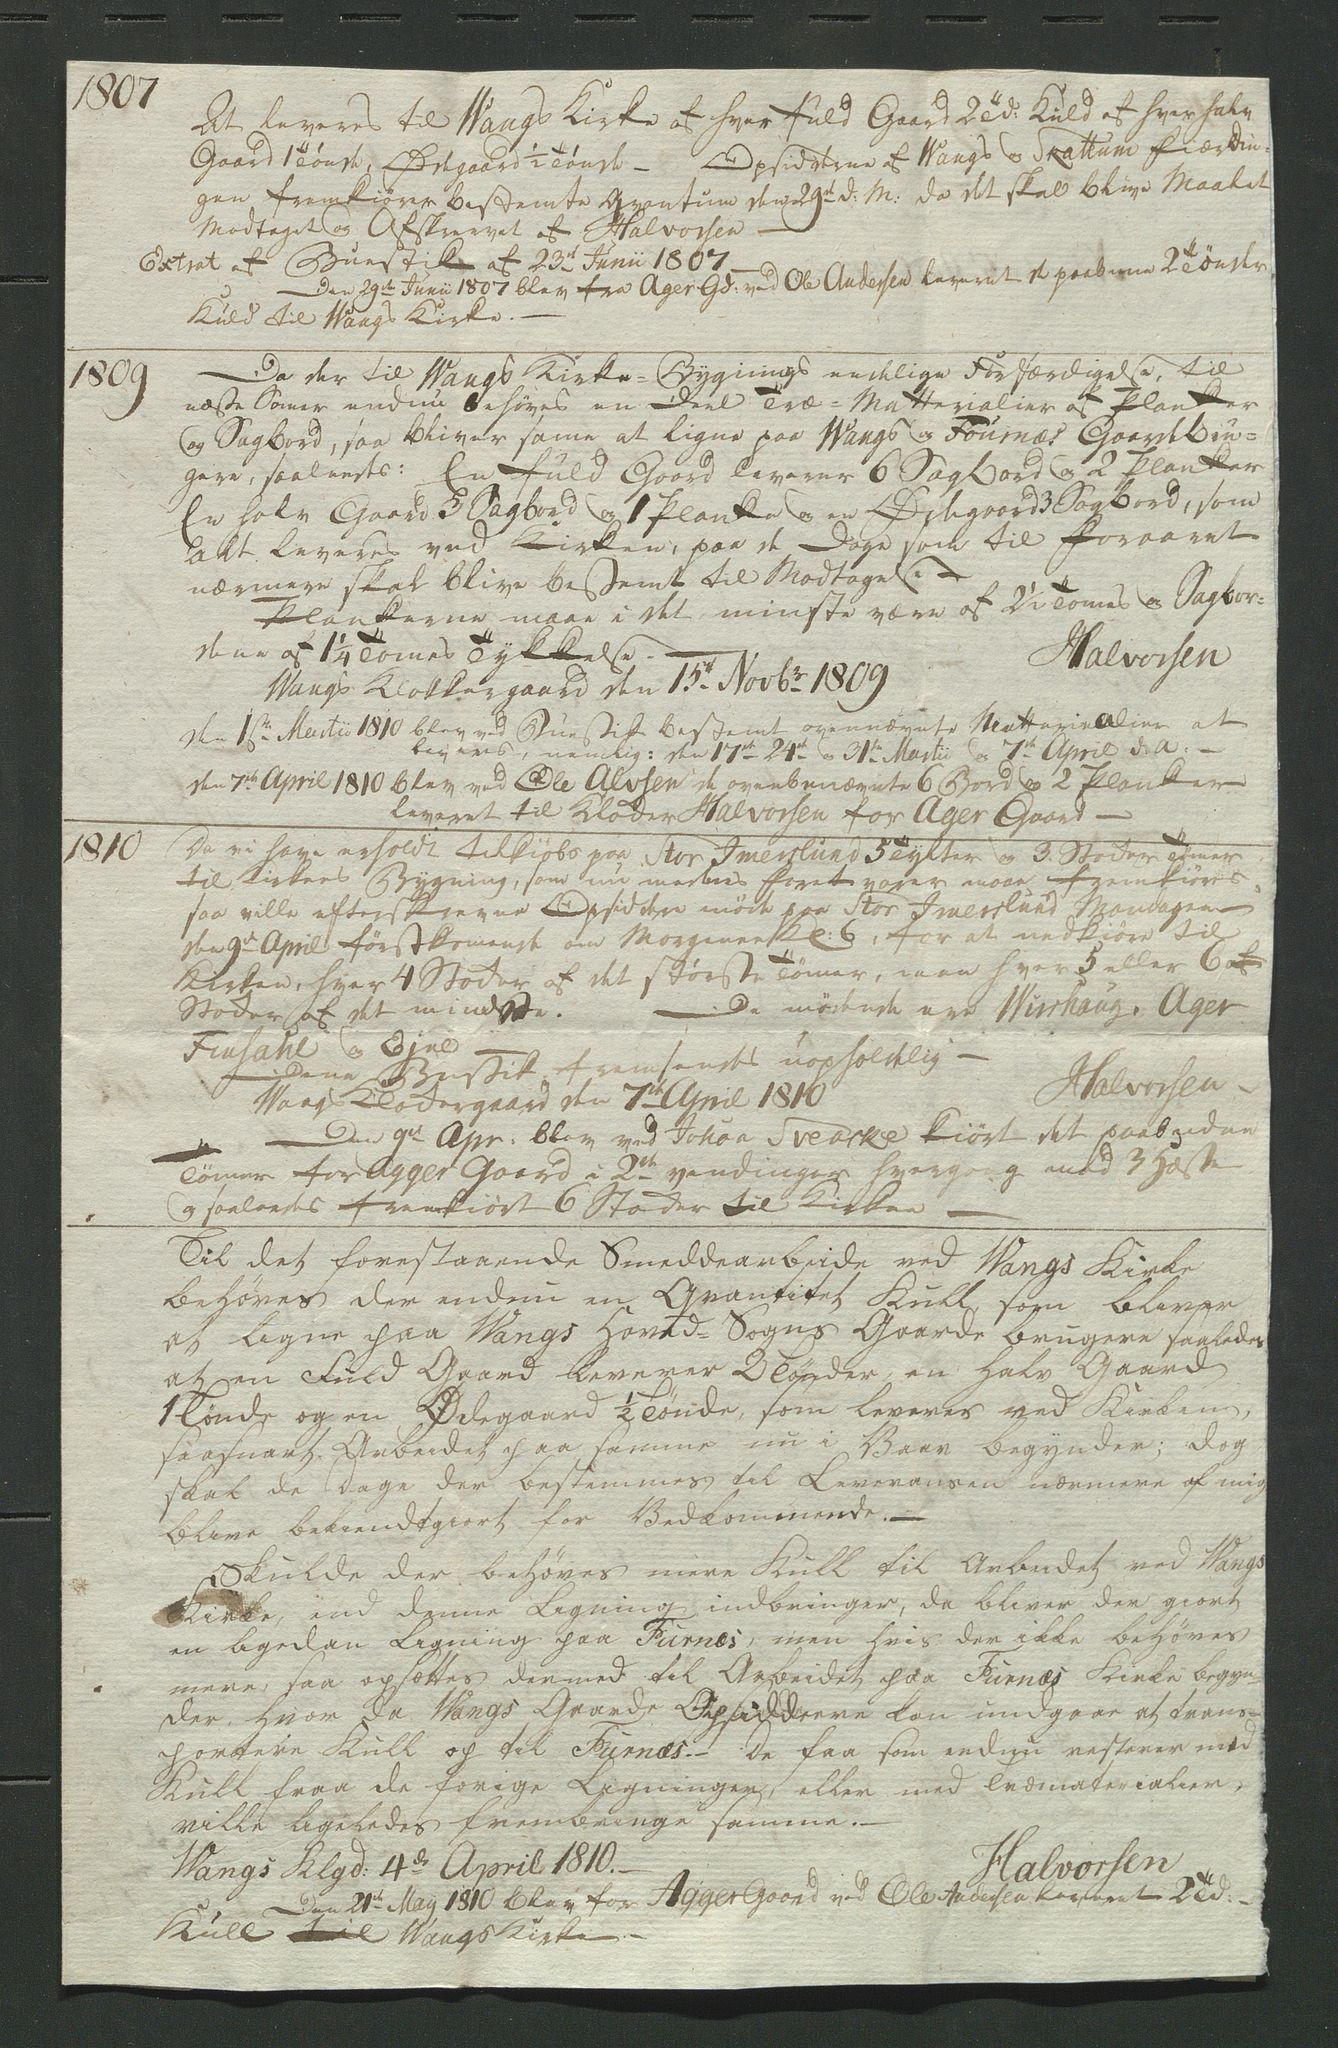 1807
At leveres til Wangs Kirke af hver fuld Gaard 2 Td: Kuld af hver halv
Gaard 1 Tönde, Ødegaard ½ Tönde – Opsidderne af Wangs og Skattum Fierdin-
gen fremkiörer bestemte Qvantum den 29de d: M: da det skal blive Maalet
Modtaget og Afskrevet af Halvorsen –
Extrat af Buestik af 23de Junii 1807
Den 29de Junii 1807 blev fra Ager Gd: ved Ole Andersen leveret de paabudne 2 Tönder
Kuld til Wangs Kirke. –
1809
Da der til Wangs Kirke=Bygnings endelige Forfærdigelse, til
næste Somer endnu behöves en Deel Træ=Matterialier af Planker
og Sagbord, saa bliver same at ligne paa Wangs og Fournæs Gaardebru=
gere, saaledes: En fuld Gaard leverer 6 Sagbord og 2 Planker
En halv Gaard 5 Sagbord og 1 Planke og en Ødegaard 3 Sagbord, som
alt leveres ved Kirken, paa de Dage som til foraaret
nærmere skal blive bestemt til Modtagelse –
Plankerne maae i det mindste være af 2½ Tomes og Sagbor=
dene af 1¼ Tomes Tykkelse. –
Halvorsen
Wangs Klokkergaard den 15de Novbr 1809
den 1ste Martii 1810 blev ved Buestik bestemt ovennævnte Matterialier at
leveres, nemlig: den 17de 24de og 31te Martii og 7de April d. a. –
den 7de April 1810 blev ved Ole Alvsen de ovenbenævnte 6 Bord og 2 Planker
leveret til Kloker Halvorsen for Ager Gaard –
1810
Da vi have erholdt tilkiöbs paa Stor Imerslund 5 Tylter og 3 Stoker Tömer
til Kirkens Bygning, som nu medens föret varer maae fremkiöres,
saa ville efterskrevne Opsiddere möde paa Stor Imerslund Mandagen
den 9de April förstkomende om Morgenen Kl: 6, for at nedkiöre til
Kirken, hver 4 Stoker af det störste Tömer, men hver 5 eller 6 af
Stoker af det mindste. – De mödende ere Wirshaug, Ager
Finsahl og Gjue –
Dene Buestik fremsendes uopholdelig –
Wangs Klokergaard den 7de April 1810
Halvorsen –
Den 9de Apr: blev ved Johan Svearke kiört det paabudne
Tömer for Agger Gaard i 2de vendinger hvergang med 3 Heste
og saaledes fremkiört 6 Stoker til Kirken –
Til det forestaaende Smeddearbeide ved Wangs Kirke
behöves der endnu en Qvantitet Kull, som bliver
at ligne paa Wangs Hoved=Sogns Gaarde brugere saaledes
at en Fuld Gaard leverer 2 Tönder, en Halv Gaard
1 Tönde og en Ødegaard ½ Tönde, som leveres ved Kirken,
saasnart Arbeidet paa samme nu i Vaar begynder; dog
skal de Dage der bestemmes til Leverancen nærmere af mig
blive bekiendtgiort for Vedkommende. –
Skulde der behöves mere Kull til Arbeidet ved Wangs
Kirke, end denne Ligning indbringer, da bliver der giort
en ligedan Ligning paa Furnæs, men hvis der ikke behöves
mere, saa opsættes dermed til Arbeidet paa Furnæs Kirke begyn-
der, hvor da Wangs Gaarde Opsiddere kan undgaae at trans-
portere Kull op til Furnæs. – De faa som endnu rester med
Kull fraa de forige Ligninger, eller med Træmaterialier,
ville ligeledes frembringe samme. –
Wangs Klgd: 4de April 1810. –
Halvorsen
Den 21de May 1810 blev for Agger Gaard ved Ole Andersen leveret 2 Td: –
Kull til Wangs Kirke –